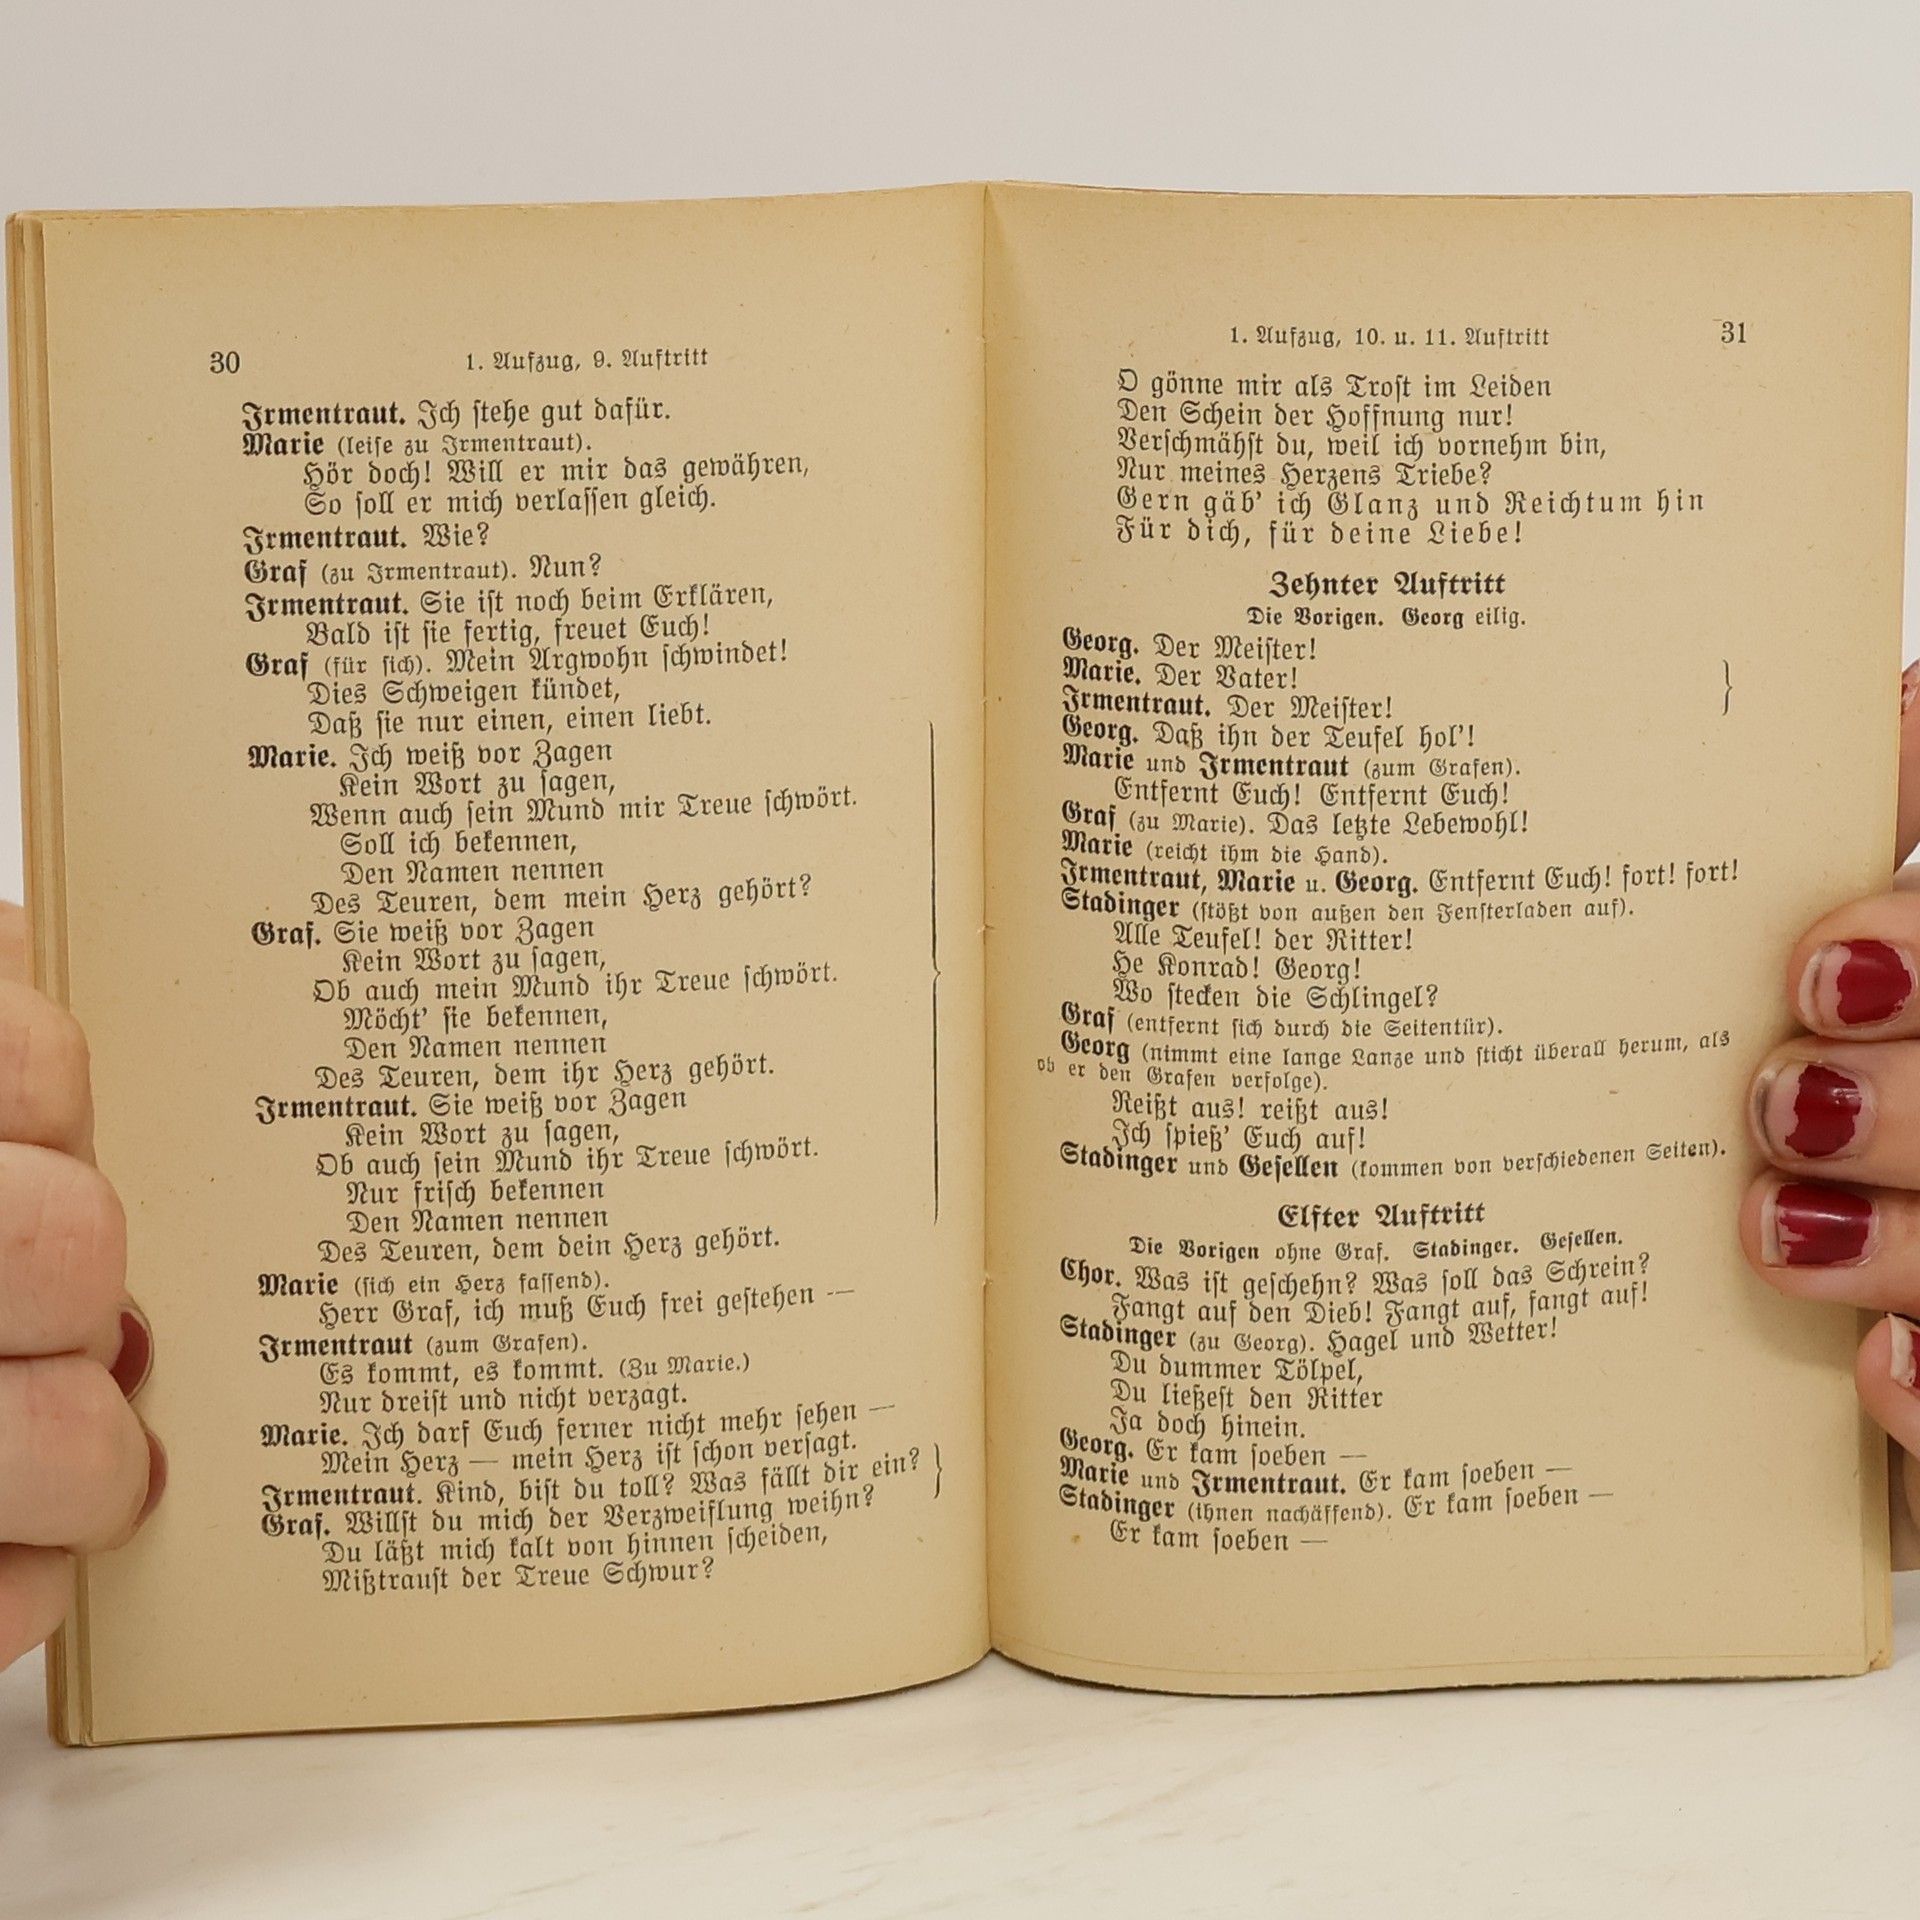 30
1. Aufzug, 9. Auftritt
Irmentraut. Ich ſtehe gut dafür.
Marie (leiſe zu Irmentraut).
Hör doch! Will er mir das gewähren,
So ſoll er mich verlaſſen gleich.
Irmentraut. Wie?
Graf (zu Irmentraut). Nun?
Irmentraut. Sie iſt noch beim Erklären,
Bald iſt ſie fertig, freuet Euch!
Graf (für ſich). Mein Argwohn ſchwindet!
Dies Schweigen kündet,
Daß ſie nur einen, einen liebt.
Marie. Ich weiß vor Zagen
Kein Wort zu ſagen,
Wenn auch ſein Mund mir Treue ſchwört.
Soll ich bekennen,
Den Namen nennen
Des Teuren, dem mein Herz gehört?
Graf. Sie weiß vor Zagen
Kein Wort zu ſagen,
Ob auch mein Mund ihr Treue ſchwört.
Möcht' ſie bekennen,
Den Namen nennen
Des Teuren, dem ihr Herz gehört.
Irmentraut. Sie weiß vor Zagen
Kein Wort zu ſagen,
Ob auch ſein Mund ihr Treue ſchwört.
Nur friſch bekennen
Den Namen nennen
Des Teuren, dem dein Herz gehört.
Marie (ſich ein Herz faſſend).
Herr Graf, ich muß Euch frei geſtehen —
Irmentraut (zum Grafen).
Es kommt, es kommt. (Zu Marie.)
Nur dreiſt und nicht verzagt.
Marie. Ich darf Euch ferner nicht mehr ſehen —
Mein Herz — mein Herz iſt ſchon verſagt.
Irmentraut. Kind, biſt du toll? Was fällt dir ein?
Graf. Willſt du mich der Verzweiflung weihn?
Du läßt mich kalt von hinnen ſcheiden,
Mißtrauſt der Treue Schwur?
1. Aufzug, 10. u. 11. Auftritt
31
O gönne mir als Troſt im Leiden
Den Schein der Hoffnung nur!
Verſchmähſt du, weil ich vornehm bin,
Nur meines Herzens Triebe?
Gern gäb' ich Glanz und Reichtum hin
Für dich, für deine Liebe!
Zehnter Auftritt
Die Vorigen. Georg eilig.
Georg. Der Meiſter!
Marie. Der Vater!
Irmentraut. Der Meiſter!
Georg. Daß ihn der Teufel hol'!
Marie und Irmentraut (zum Grafen).
Entfernt Euch! Entfernt Euch!
Graf (zu Marie). Das letzte Lebewohl!
Marie (reicht ihm die Hand).
Irmentraut, Marie u. Georg. Entfernt Euch! fort! fort!
Stadinger (ſtößt von außen den Fenſterladen auf).
Alle Teufel! der Ritter!
He Konrad! Georg!
Wo ſtecken die Schlingel?
Graf (entfernt ſich durch die Seitentür).
Georg (nimmt eine lange Lanze und ſticht überall herum, als
ob er den Grafen verfolge).
Reißt aus! reißt aus!
Ich ſpieß' Euch auf!
Stadinger und Geſellen (kommen von verſchiedenen Seiten).
Elfter Auftritt
Die Vorigen ohne Graf. Stadinger. Geſellen.
Chor. Was iſt geſchehn? Was ſoll das Schrein?
Fangt auf den Dieb! Fangt auf, fangt auf!
Stadinger (zu Georg). Hagel und Wetter!
Du dummer Tölpel,
Du ließeſt den Ritter
Ja doch hinein.
Georg. Er kam ſoeben —
Marie und Irmentraut. Er kam ſoeben —
Stadinger (ihnen nachäffend). Er kam ſoeben —
Er kam ſoeben —